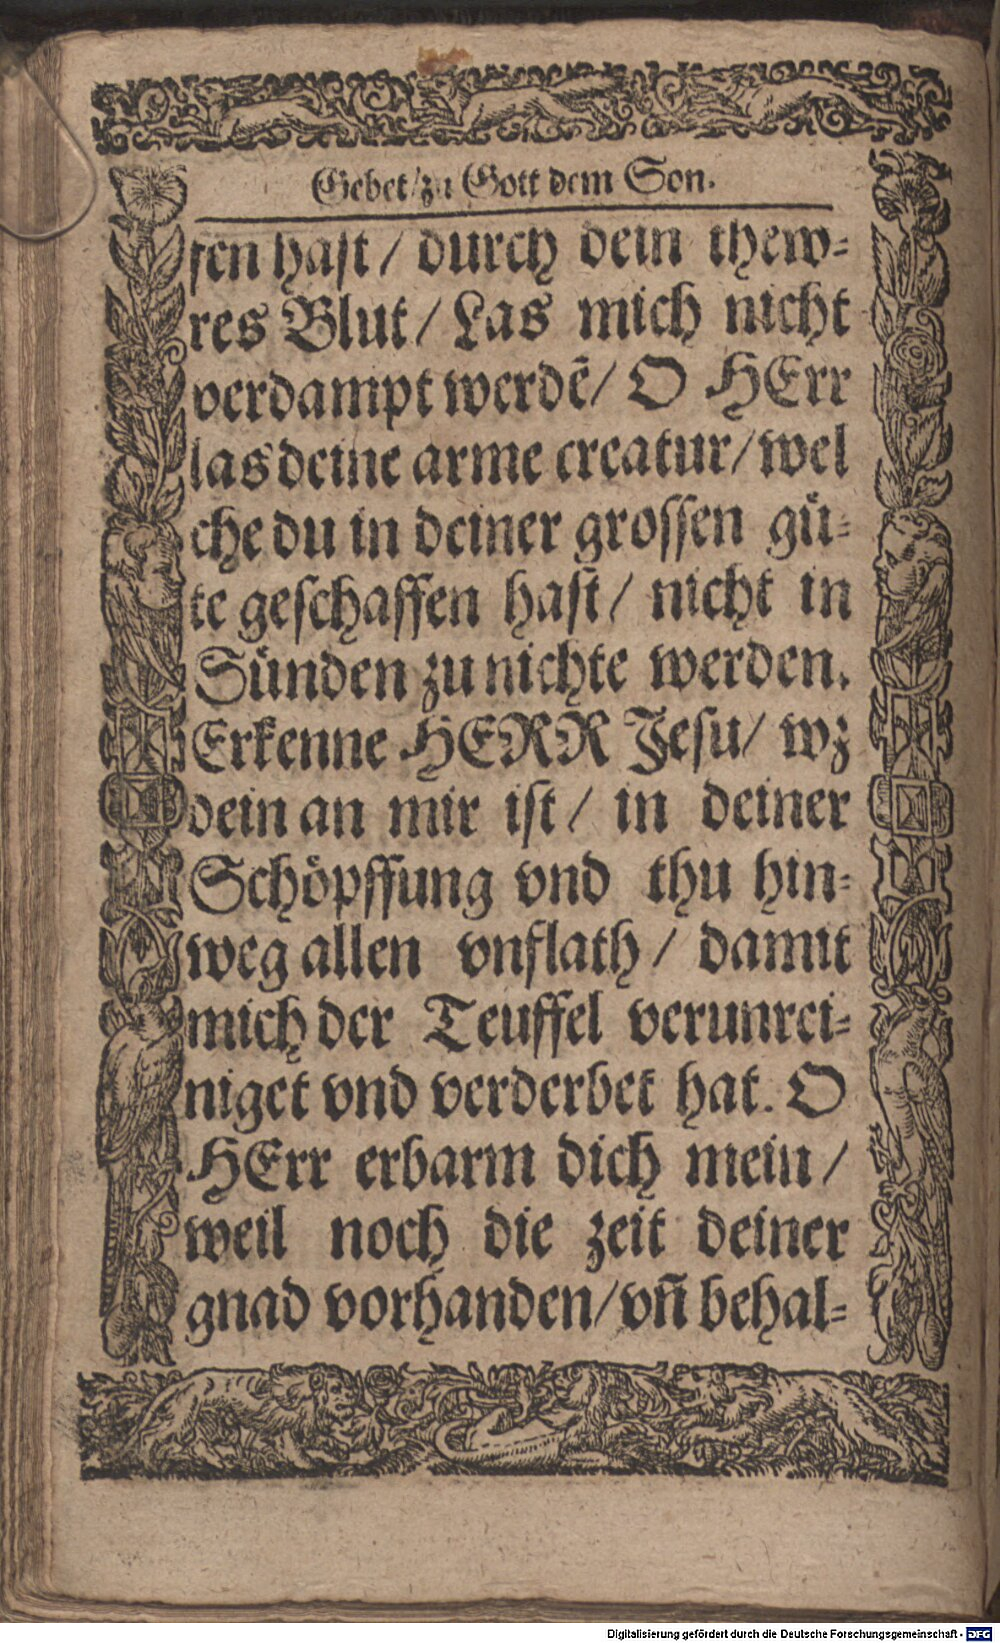 Gebet/ zu Gott dem Son.
sen hast / durch dein thew-
res Blut / Las mich nicht
verdampt werdẽ / O HErr
las deine arme creatur / wel
che du in deiner grossen gü-
te geschaffen hast / nicht in
Sünden zu nichte werden.
Erkenne HERR Jesu / wz
dein an mir ist / in deiner
Schöpffung vnd thu hin-
weg allen vnflath / damit
mich der Teuffel verunrei-
niget vnd verderbet hat. O
HErr erbarm dich mein /
weil noch die zeit deiner
gnad vorhanden / vñ behal-
Digitalisierung gefördert durch die Deutsche Forschungsgemeinschaft - DFG